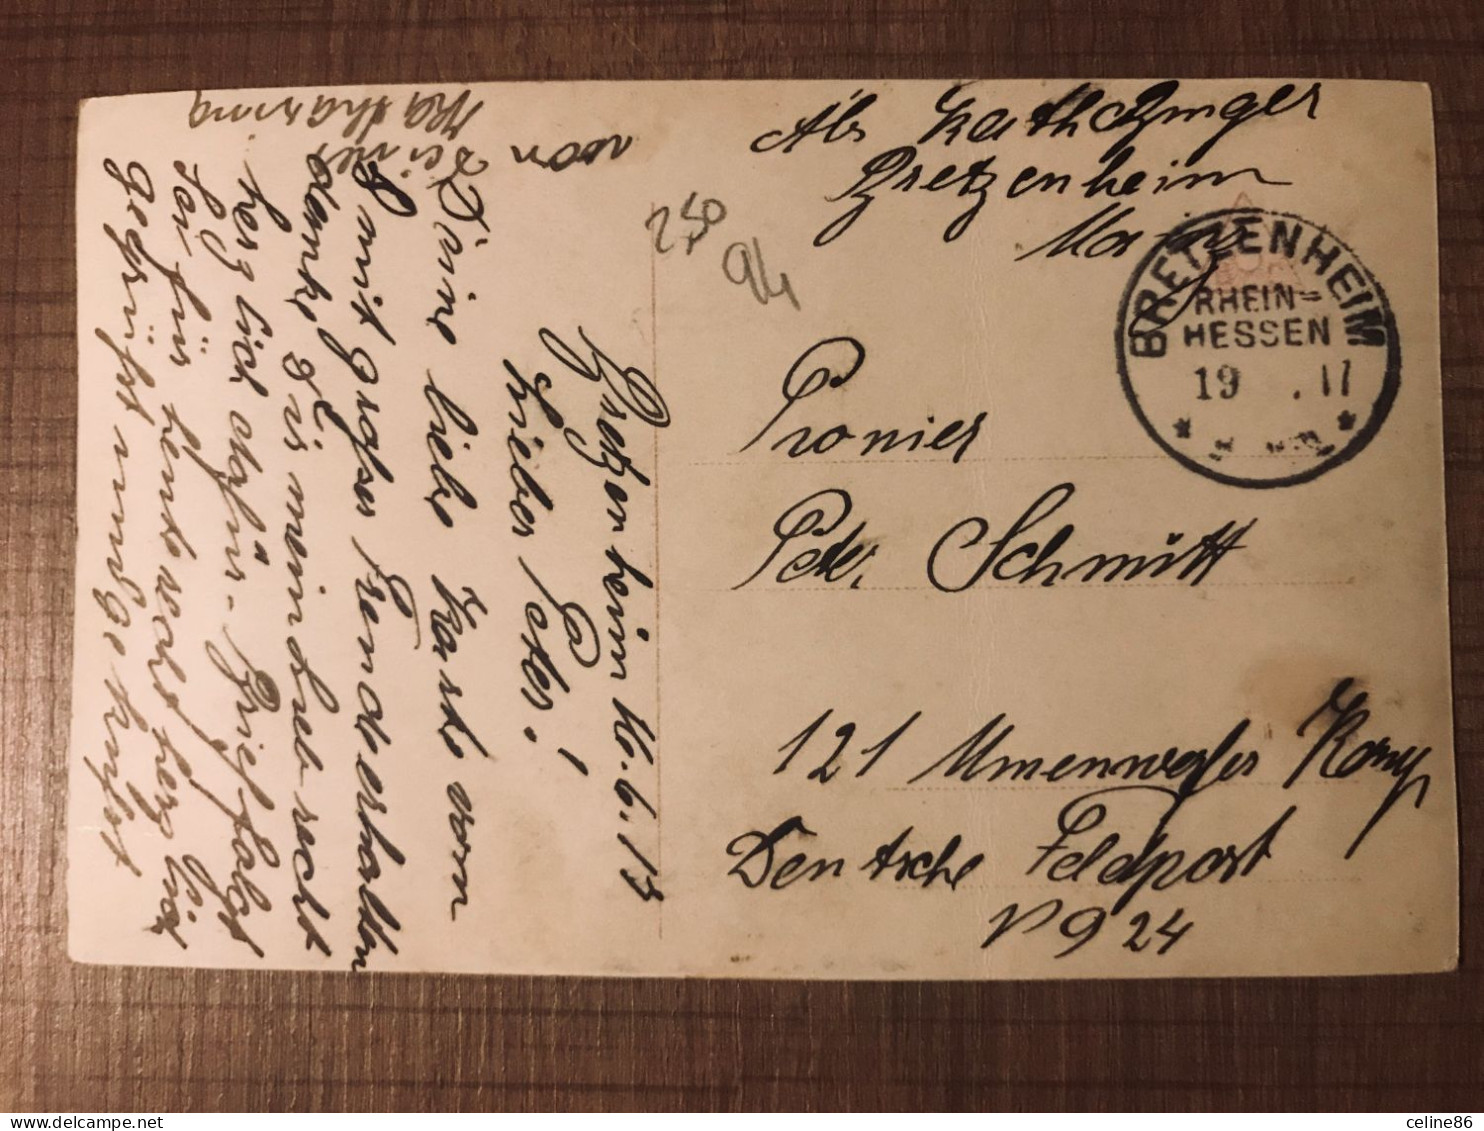 Abs Kath Zinger
Bretzenheim
BRETZENHEIM
RHEIN=
HESSEN
19 . 17
250
94
Pronier
Peter Schmitt
121 Komp
Deutsche Feldpost
N 924
Bretzenheim 16.6.13
Lieber Peter!
Deine liebe Karte vom
mit großer Freude erhalten
danke Dir meinlieb recht
herzlich dafür. Brief folgt
Sei für heute recht herzlich
gegrüßt und geküßt
von
Deiner
Katharina
celine86